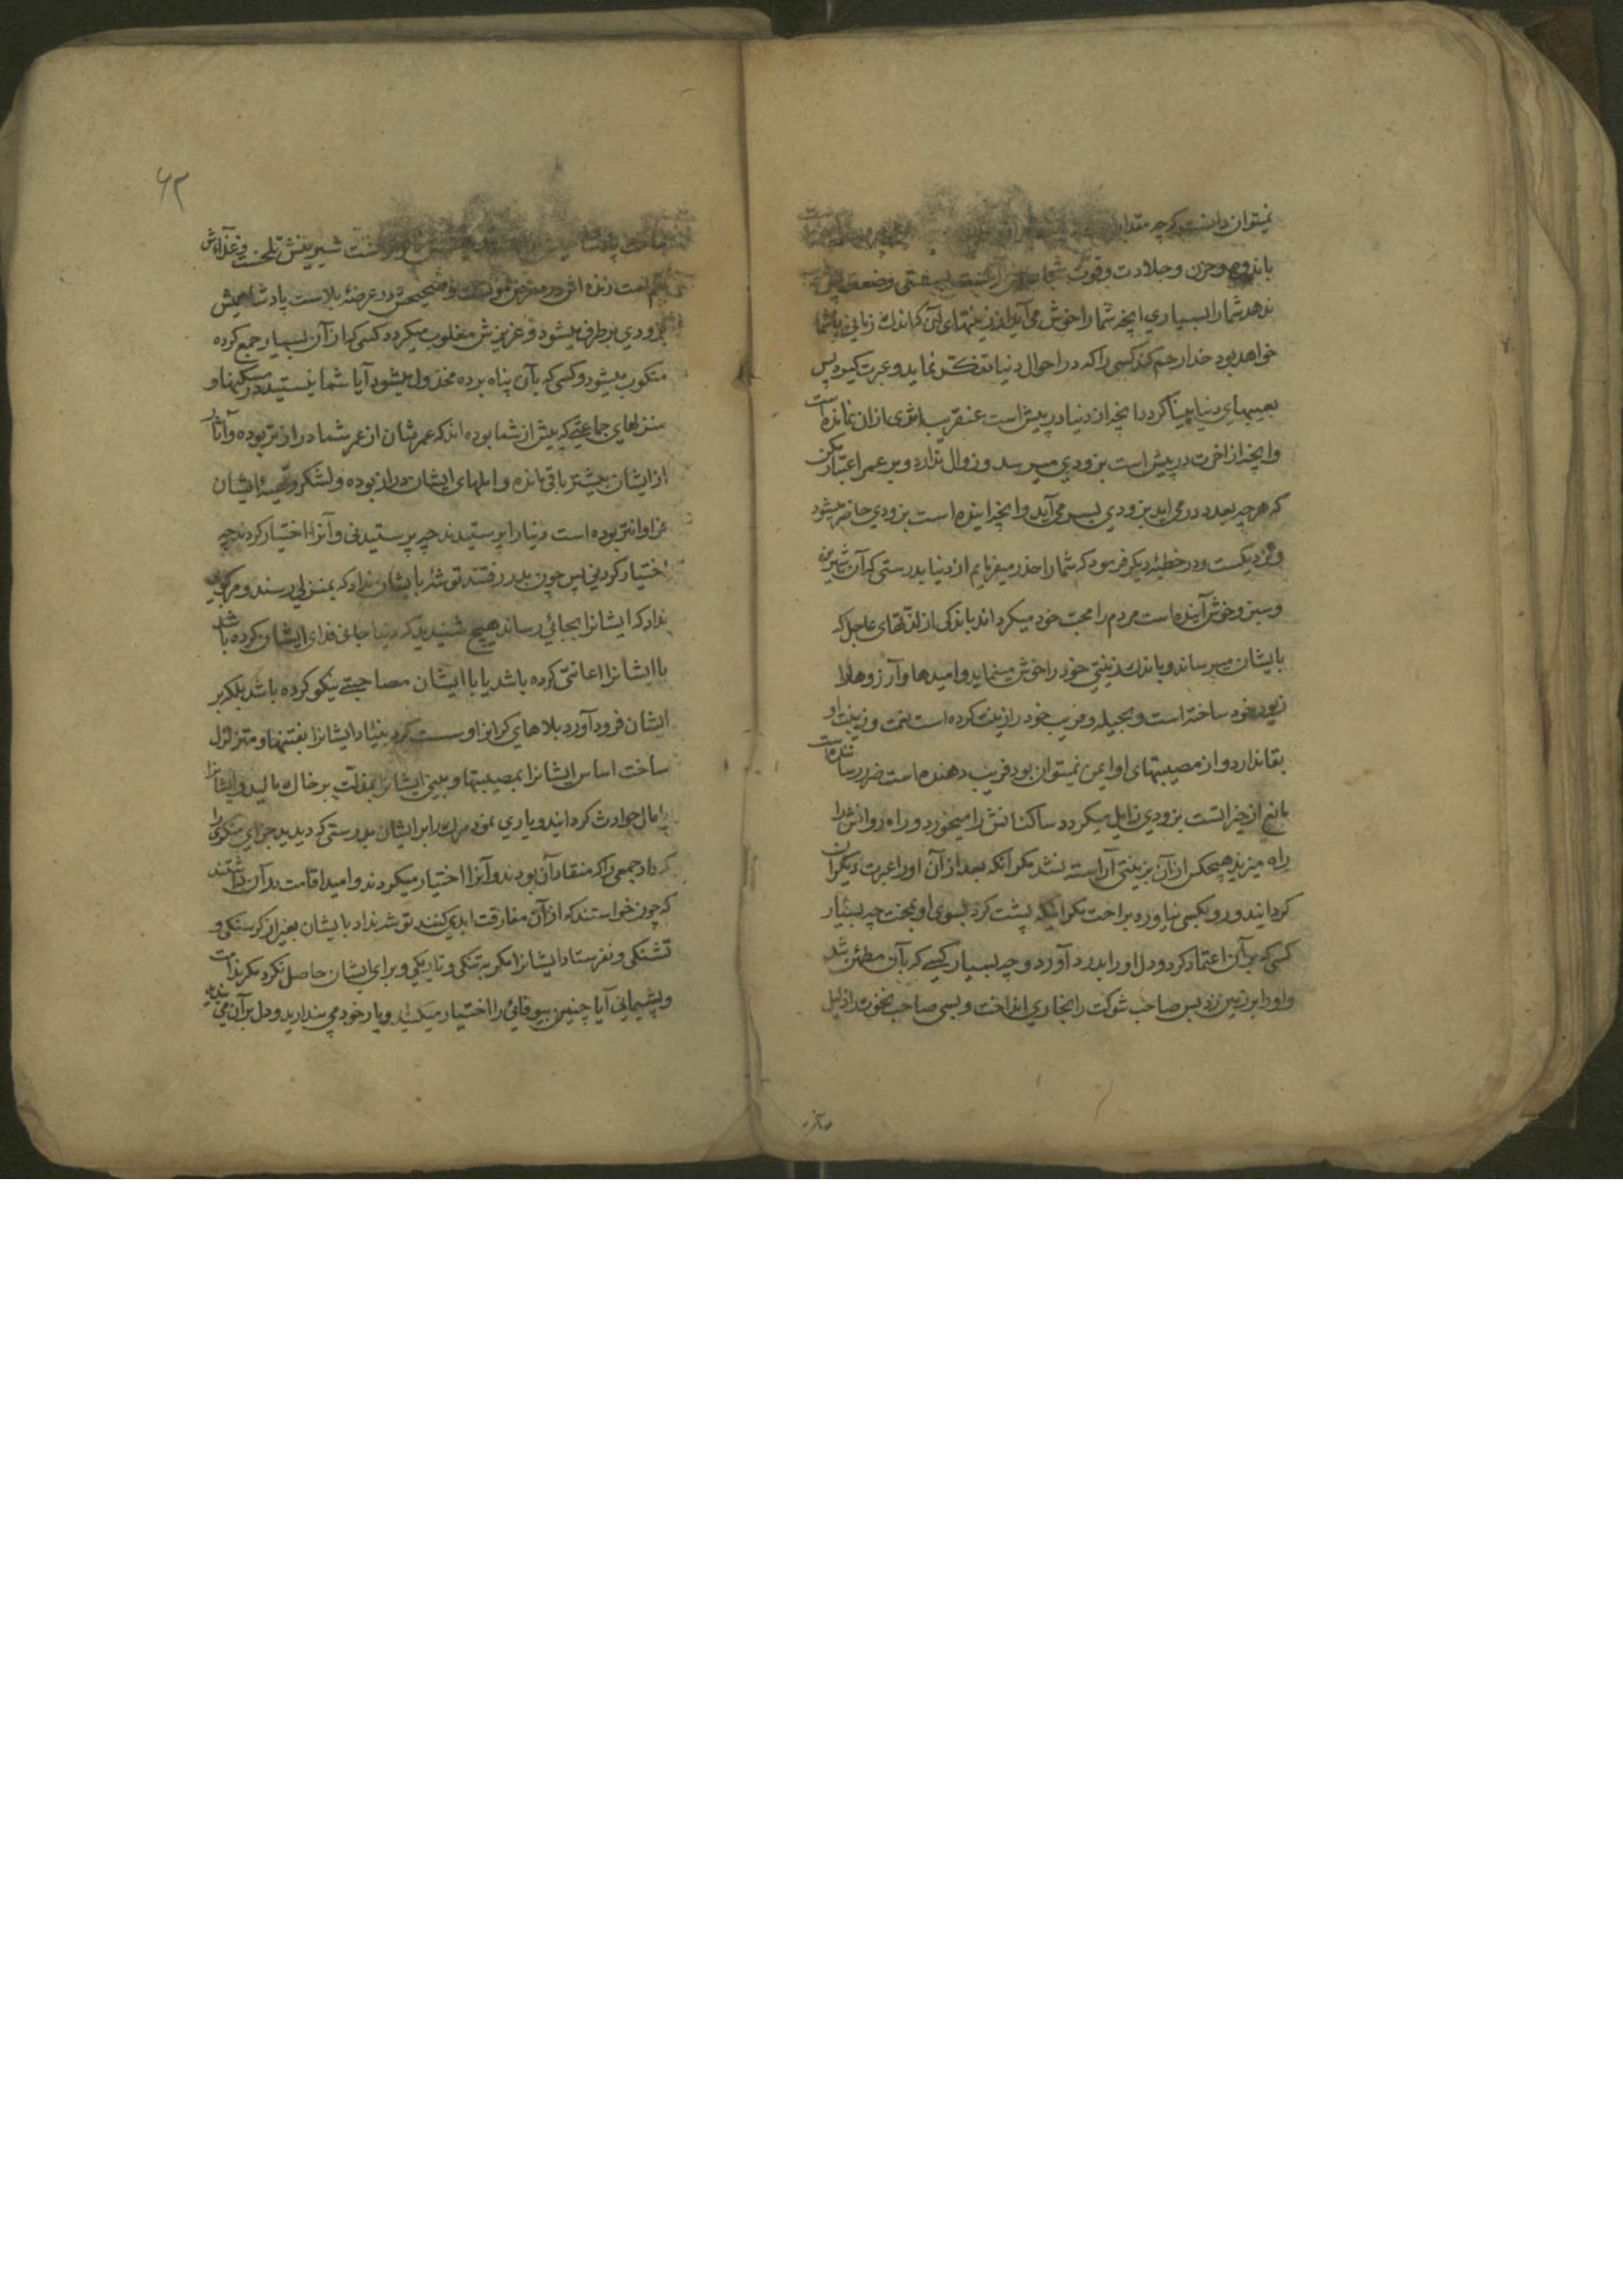 نمیتوان دانست که چه مقدار
باندوه و حزن و جلادت و قوت شما بسستی و ضعف پس
ندهد شما را بسیاری انچه شما را خوش می آید از زینتهای آن که اندك زمانی باشما
خواهد بود خدا رحم کند کسی را که در احوال دنیا تفکّر نماید و عبرت گیرد پس
بعیبهای دنیا بینا گردد انچه از دنیا در پیش است عنقریب اثری ازان نمانده است
و انچه از اخرت در پیش است بزودی میرسد و زوال ندارد و بر عمر اعتبار مکن
که هر چه بعدد در می اید بزودی بسر می آید و انچه اینده است بزودی حاضر میشود
و نزدیکست و در خطبهٔ دیگر فرمود که شما را حذر میفرمایم از دنیا بدرستی که آن شیرین
و سبز و خوش آینده است مردم را محب خود میگرداند باندکی از لذّتهای عاجل که
بایشان میرساند و باندك زینتی خود را خوش مینماید و امیدها و آرزوها را
زیور خود ساخته است و بحیله و فریب خود را زینت کرده است نعمت و زینت او
بقا ندارد و از مصیبتهای او ایمن نمیتوان بود فریب دهنده است ضرر رساننده است
مانع از خیراتست بزودی زایل میگردد ساکنانش را میخورد و راه روانش را
راه میزند هیچکس ازان بزینتی آراسته نشد مگر آنکه بعد از آن او را عبرت دیگران
گردانید و رو بکسی نیاورد براحت مگر اینکه پشت کرد بسوی او بمحنت چه بسیار
کسی که بر آن اعتماد کرد و دل او را بدرد آورد و چه بسیار کسی که بآن مطمئن شد
و او را بر زمین زد بس صاحب شوکت را بخاری انداخت و بسی صاحب نخوت را ذلیل
۶۲
شیرینش تلخست و غذاءش
در معرض در عرضهٔ بلاست پادشاهیش
بزودی بر طرف میشود و عزیزش مغلوب میگردد کسی که از آن بسیار جمع کرده
منکوب میشود و کسی که بآن پناه برده مخذول میشود آیا شما نیستید در مسکنها و
منزلهای جماعتی که پیش از شما بوده اند که عمرشان از عمر شما درازتر بوده و آثار
از ایشان بیشتر باقی مانده و املهای ایشان دراز بوده و لشکر و تهیهٔ ایشان
فراوانتر بوده است دنیا را پرستیدند چه پرستیدنی و آنرا اختیار کردند چه
اختیار کردنی پس چون بدر رفتند توشهٔ بایشان نداد که بمنزلی رسند و مرکبی
نداد که ایشانرا بجائی رساند هیچ شنیدید که دنیا جانی فدای ایشان کرده باشد
یا ایشانرا اعانتی کرده باشد یا با ایشان مصاحبتی نیکو کرده باشد بلکه بر
ایشان فرود آورد بلاهای گرانرا و سست کرد بنیاد ایشانرا بفتنها و متزلزل
ساخت اساس ایشانرا بمصیبتها و بینی ایشانرا بمذلّت بر خاك مالید و ایشانرا
پامال حوادث گردانید و یاری نمود مرك را بر ایشان بدرستی که دیدید جزای منکری را
که داد جمعی را که منقاد آن بودند و آنرا اختیار میکردند و امید اقامت در آن داشتند
که چون خواستند که از آن مفارقت ابدی کنند توشه نداد بایشان بغیر از کرسنکی و
تشنکی و نفرستاد ایشانرا مکر به تنکی و تاریکی و برای ایشان حاصل نکرد مکر ندامت
و پشیمانی آیا چنین بیوفائی را اختیار میکنید و یار خود می پندارید و دل بر آن می بندید